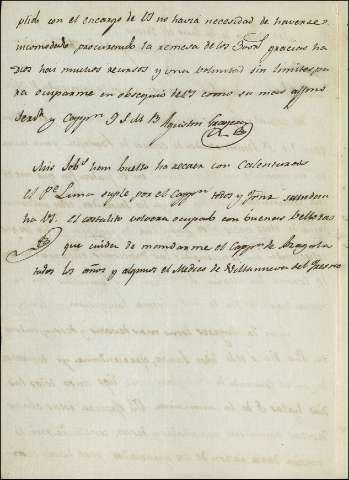 plido con el encargo de VS no havia necesidad de haverse
incomodado procurando la remesa de los gracias ha
Dios hai muchos recursos y una voluntad sin limites pa
ra ocuparme en obsequio de VS como su mas affmo
Servr y Cappn Q S M B Agustin
Mis Sobs han buelto ha recaer con Calenturas
el Pe Lima suple por el Cappn todos y saludan
ha VS. el costalito volvera ocupado con buenas bellotas
que cuida de mandarme el Cappn de Azagala
todos los años y algunos el Medico de Villanueva del Fresno